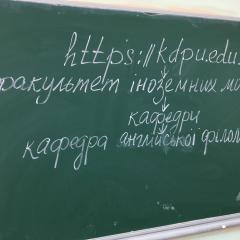 https://kdpu.edu.
факультет іноземних мо
кафедри
кафедра англійської філол